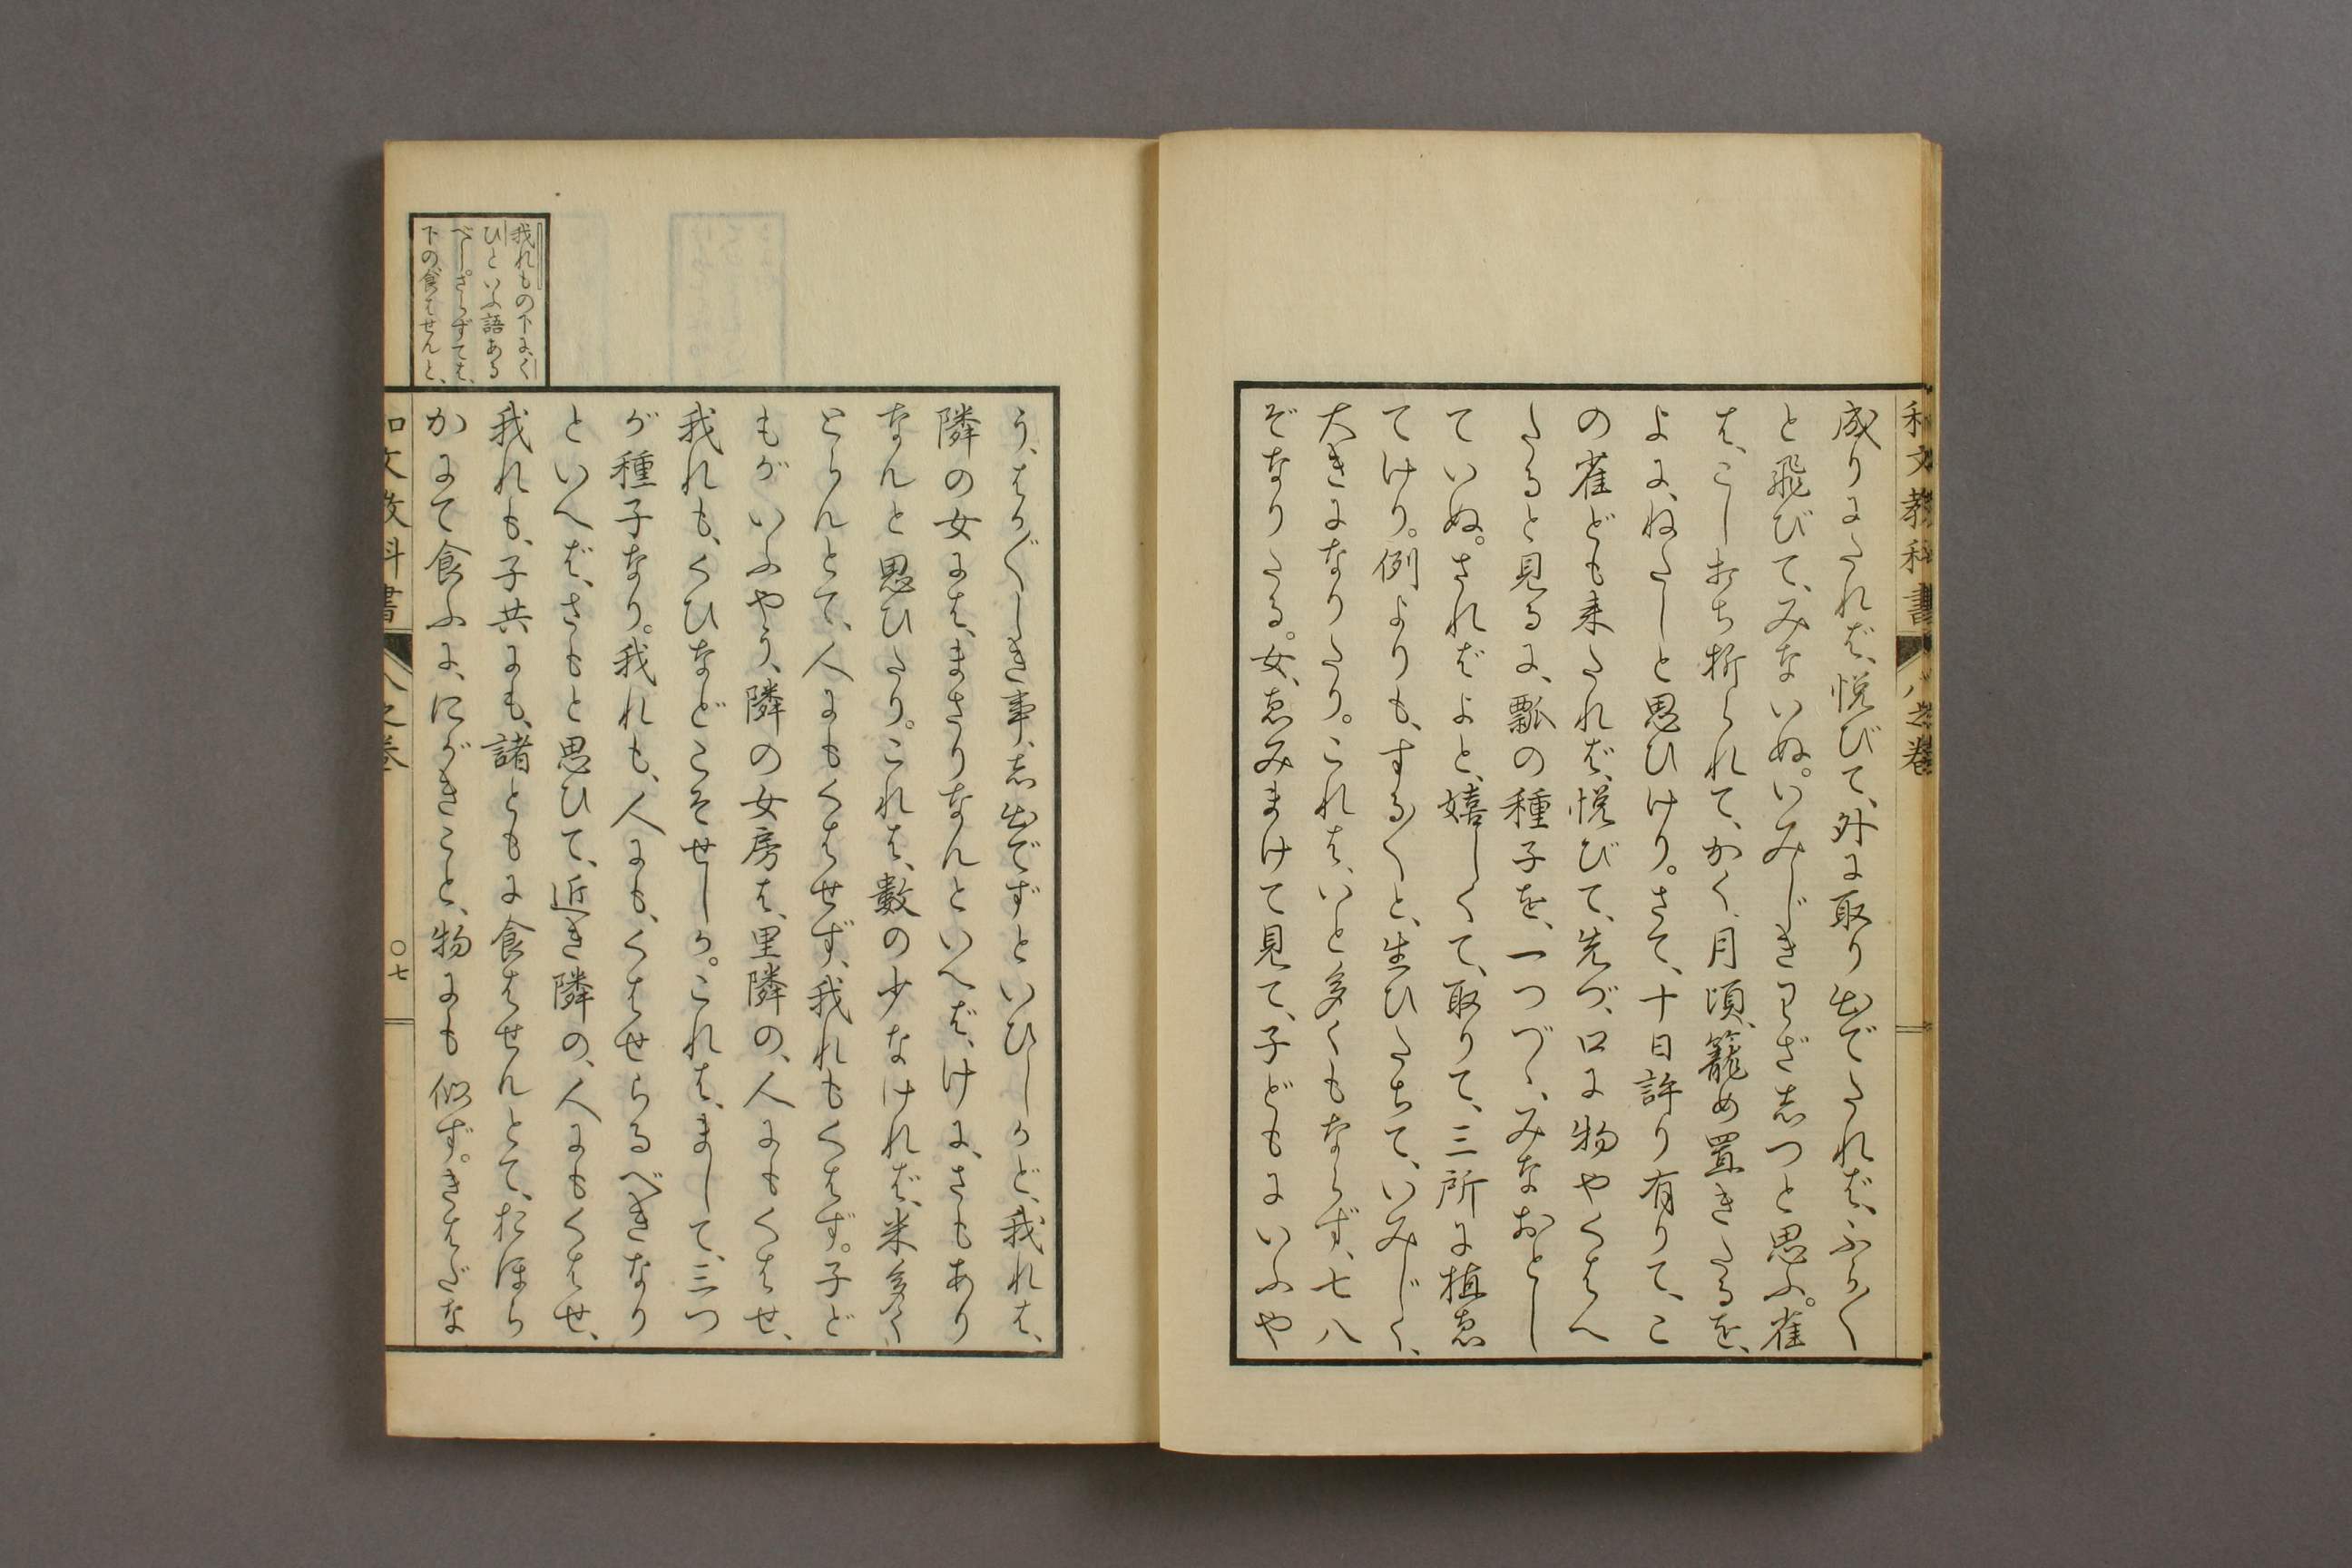 和文教科書 八之卷
成りにたれば、悦びて、外に取り出でたれば、ふら〳〵
と飛びて、みないぬ。いみじきわざ志つと思ふ。雀
は、こしおち折られて、かく、月頃、籠め置きたるを、
よに、ねたしと思ひけり。さて、十日許り有りて、こ
の雀ども来たれば、悦びて、先づ、口に物やくはへ
たると見るに、瓢の種子を、一つづゝ、みなおとし
ていぬ。さればよと、嬉しくて、取りて、三所に植ゑ
てけり。例よりも、する〳〵と、生ひたちて、いみじく、
大きになりたり。これは、いと多くもならず、七八
ぞなりたる。女、ゑみまけて見て、子どもにいふや
う、はか〴〵しき事、志出でずといひしかど、我れは、
隣の女には、まさりなんといへば、げに、さもあり
なんと思ひたり。これは、數の少なければ、米多く
とらんとて、人にもくはせず、我れもくはず。子ど
もがいふやう、隣の女房は、里隣の、人にもくはせ、
我れも、くひなどこそせしか。これは、まして、三つ
が種子なり。我れも、人にも、くはせらるべきなり
といへば、さもと思ひて、近き隣の、人にもくはせ、
我れも、子共にも、諸ともに食はせんとて、おほら
かにて食ふに、にがきこと、物にも似ず。きはだな
我れもの下に、く
ひといふ語ある
べし。さらずては、
下の食はせんと、
和文教科書 八之卷 〇七